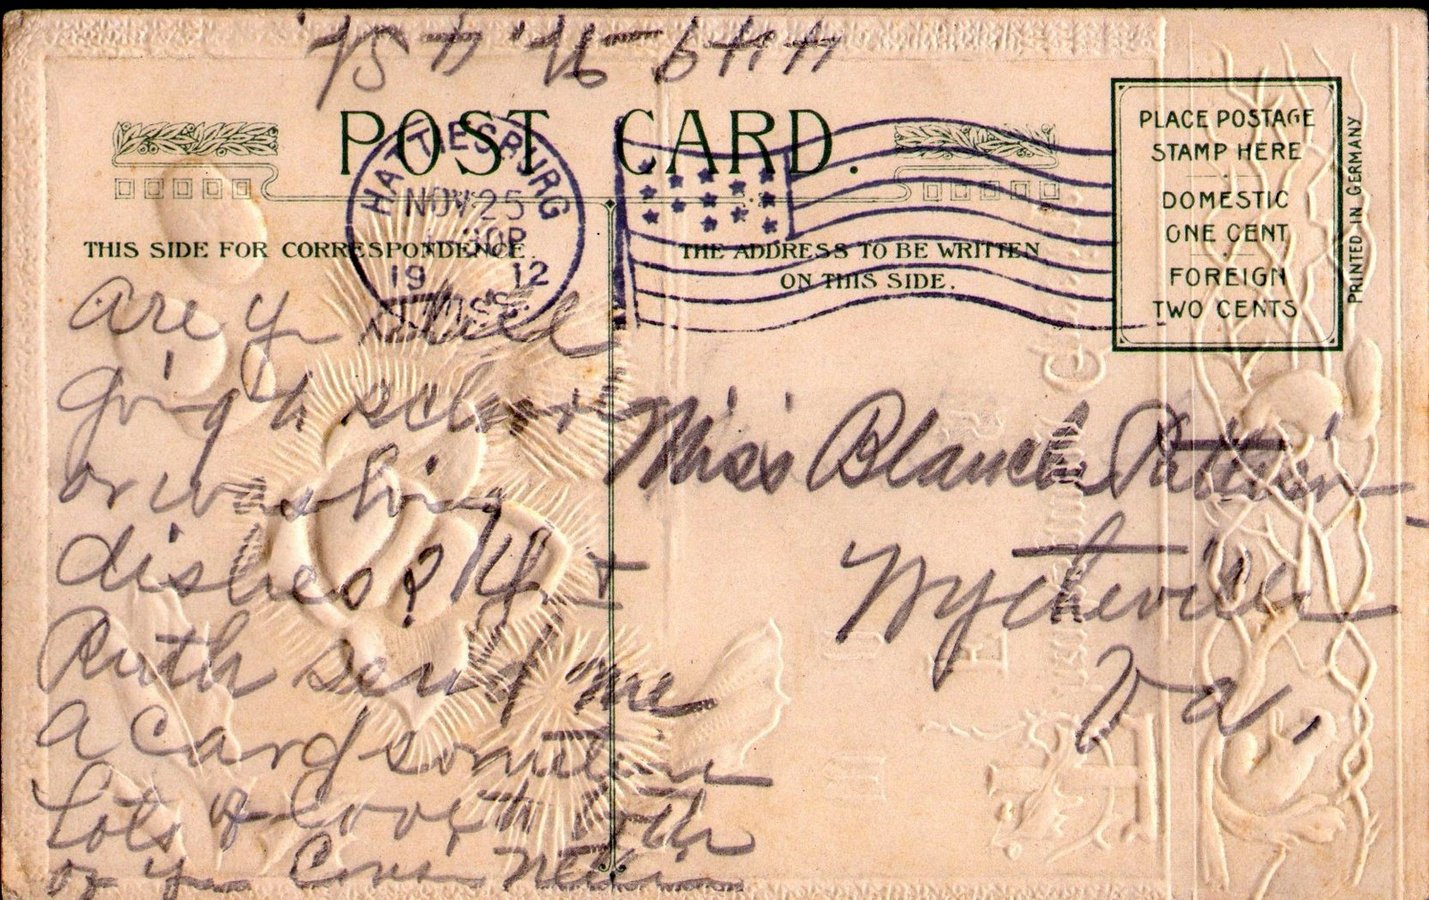 449 - N. 4 St.
POST CARD.
HATTIESBURG
NOV 25
19 12
MISS.
PLACE POSTAGE
STAMP HERE
DOMESTIC
ONE CENT
FOREIGN
TWO CENTS
PRINTED IN GERMANY
THIS SIDE FOR CORRESPONDENCE.
THE ADDRESS TO BE WRITTEN
ON THIS SIDE.
are you still
going to school
or washing
dishes? You +
Ruth send me
a card sometime
Lots of love to both
of you Cousin
Miss Blanch
Wytheville
Va.